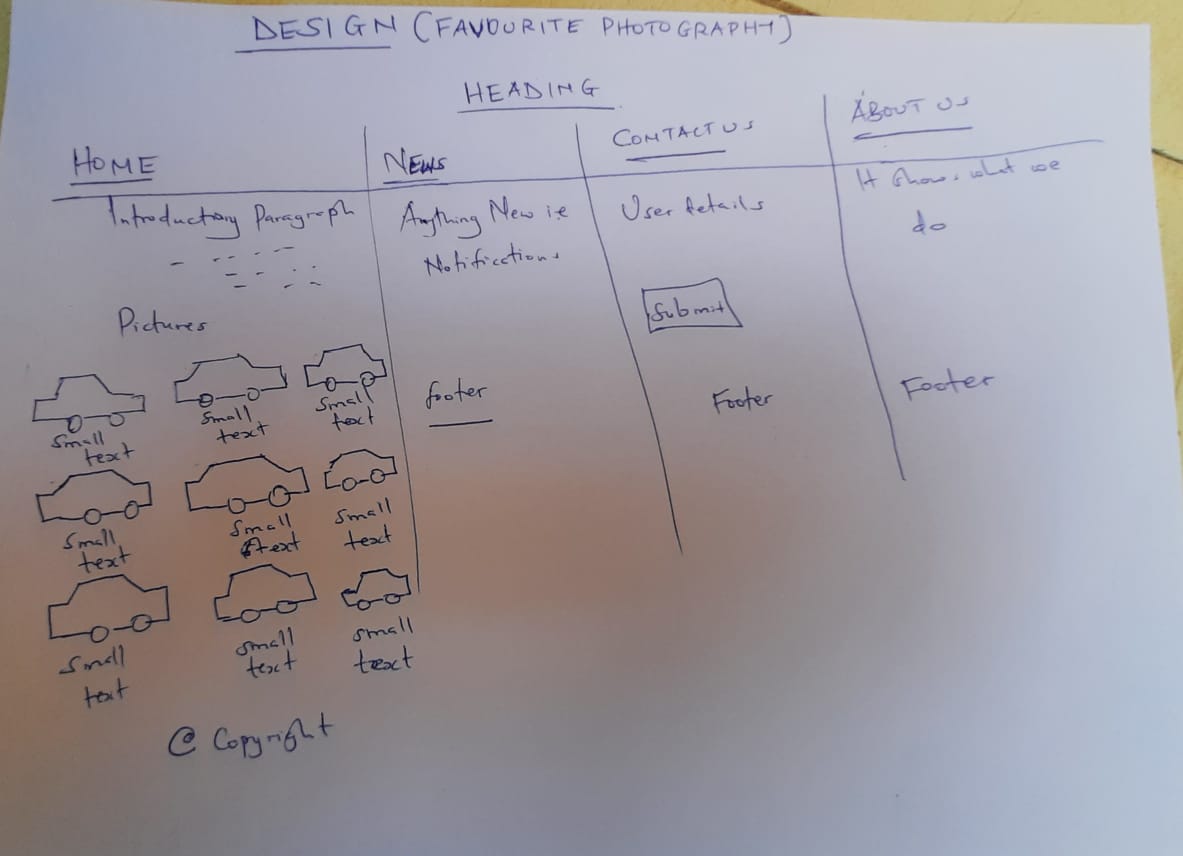 DESIGN (FAVOURITE PHOTOGRAPHY)
HEADING
HOME
Introductory Paragraph
Pictures
Small
text
Small
text
Small
text
Small
text
Small
text
Small
text
Small
text
Small
text
Small
text
@ Copyright
NEWS
Anything New i.e
Notifications
footer
CONTACT US
User details
Submit
Footer
ABOUT US
It shows what we
do
Footer